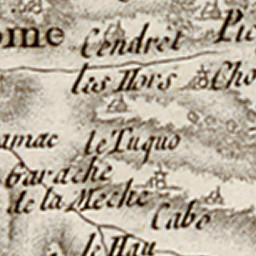 ome Cendret Pie
les Hors Cho
amac le Tuquo
Garache
de la Meche
Cabo
le Hau